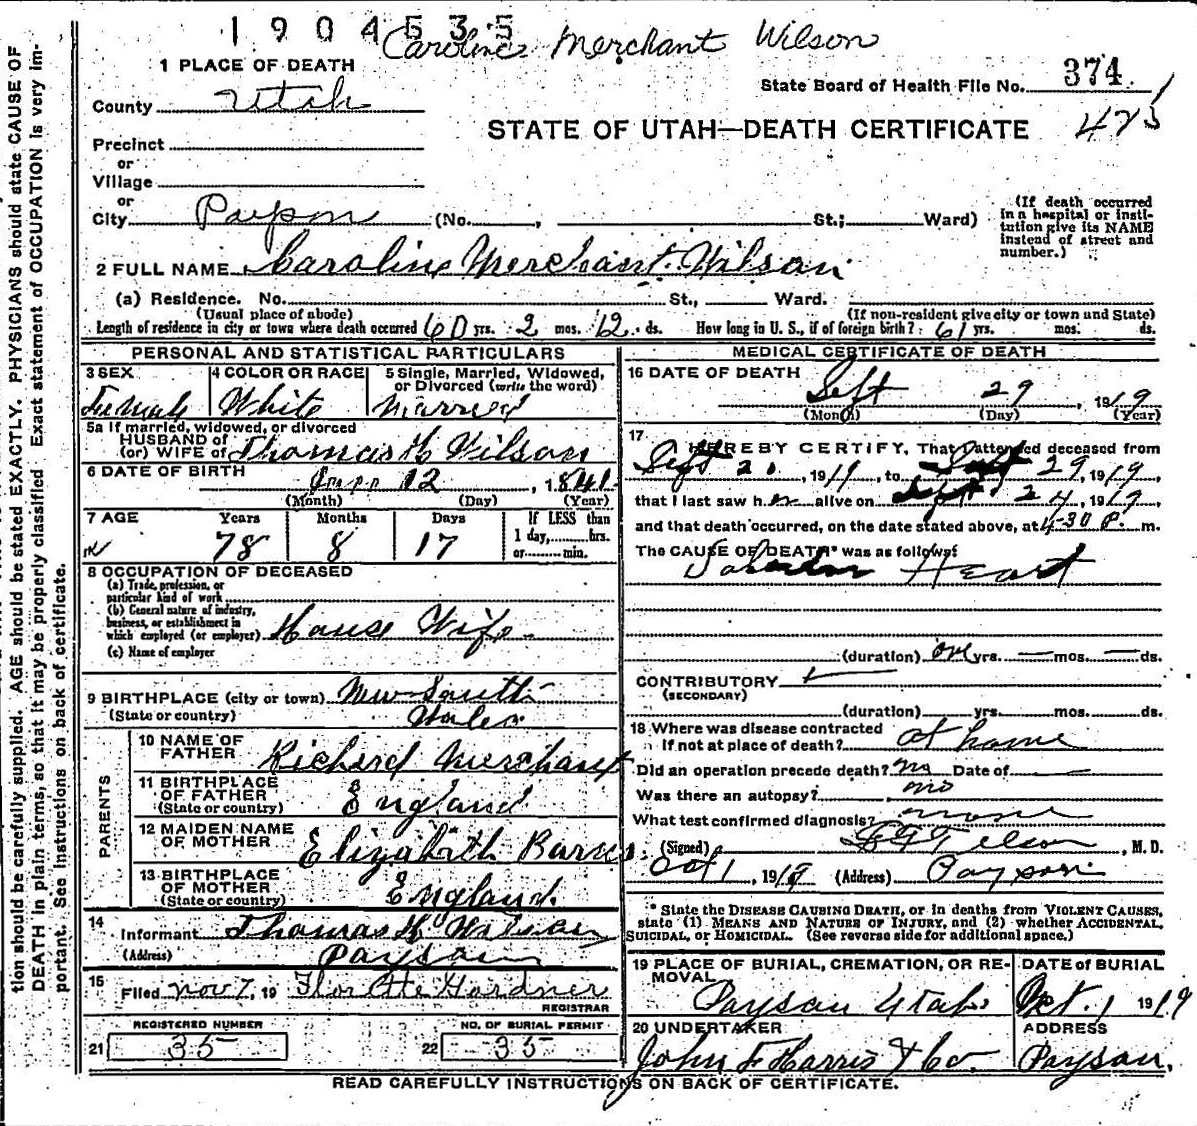 1904535
Caroline Merchant Wilson
1 PLACE OF DEATH
State Board of Health File No. 374
County Utah
425
STATE OF UTAH—DEATH CERTIFICATE
Precinct
or
Village
or
City Payson (No. , St.; Ward)
(If death occurred in a hospital or insti-
tution give its NAME
instead of street and
number.)
2 FULL NAME Caroline Merchant Wilson
(a) Residence. No. St., Ward.
(Usual place of abode) (If non-resident give city or town and State)
Length of residence in city or town where death occurred 60 yrs. 2 mos. 12 ds. How long in U. S., if of foreign birth? 61 yrs. mos. ds.
PERSONAL AND STATISTICAL PARTICULARS
3 SEX 4 COLOR OR RACE 5 Single, Married, Widowed,
or Divorced (write the word)
Female White Married
5a If married, widowed, or divorced
HUSBAND of
(or) WIFE of Thomas H Wilson
6 DATE OF BIRTH
12, 1841
(Month) (Day) (Year)
7 AGE Years Months Days If LESS than
1 day, hrs.
or min.
78 8 17
8 OCCUPATION OF DECEASED
(a) Trade, profession, or
particular kind of work
(b) General nature of industry,
business, or establishment in
which employed (or employer) House Wife
(c) Name of employer
9 BIRTHPLACE (city or town) New South
(State or country) Wales
PARENTS
10 NAME OF
FATHER Richard Merchant
11 BIRTHPLACE
OF FATHER England
(State or country)
12 MAIDEN NAME
OF MOTHER Elizabeth Barns
13 BIRTHPLACE
OF MOTHER England
(State or country)
14
Informant Thomas H Wilson
(Address) Payson
15
Filed Nov 7, 19 Gardner
REGISTRAR
REGISTERED NUMBER NO. OF BURIAL PERMIT
21 35 22 35
MEDICAL CERTIFICATE OF DEATH
16 DATE OF DEATH
Sept 29, 1919
(Month) (Day) (Year)
17
I HEREBY CERTIFY, That I attended deceased from
Sept 2, 1919, to Sept 29, 1919,
that I last saw her alive on Sept. 24, 1919,
and that death occurred, on the date stated above, at 4-30 P. m.
The CAUSE OF DEATH* was as follows:
Heart
(duration) one yrs. — mos. — ds.
CONTRIBUTORY
(SECONDARY)
(duration) yrs. mos. ds.
18 Where was disease contracted
If not at place of death? at home
Did an operation precede death? no Date of
Was there an autopsy? no
What test confirmed diagnosis? none
(Signed) , M. D.
Oct 1, 1919 (Address) Payson
* State the DISEASE CAUSING DEATH, or in deaths from VIOLENT CAUSES,
state (1) MEANS AND NATURE OF INJURY, and (2) whether ACCIDENTAL,
SUICIDAL, or HOMICIDAL. (See reverse side for additional space.)
19 PLACE OF BURIAL, CREMATION, OR RE-
MOVAL DATE of BURIAL
Payson Utah Oct. 1 1919
20 UNDERTAKER ADDRESS
John F Harris & Co. Payson.
READ CAREFULLY INSTRUCTIONS ON BACK OF CERTIFICATE.
tion should be carefully supplied. AGE should be stated EXACTLY. PHYSICIANS should state CAUSE OF
DEATH in plain terms, so that it may be properly classified. Exact statement of OCCUPATION is very im-
portant. See instructions on back of certificate.